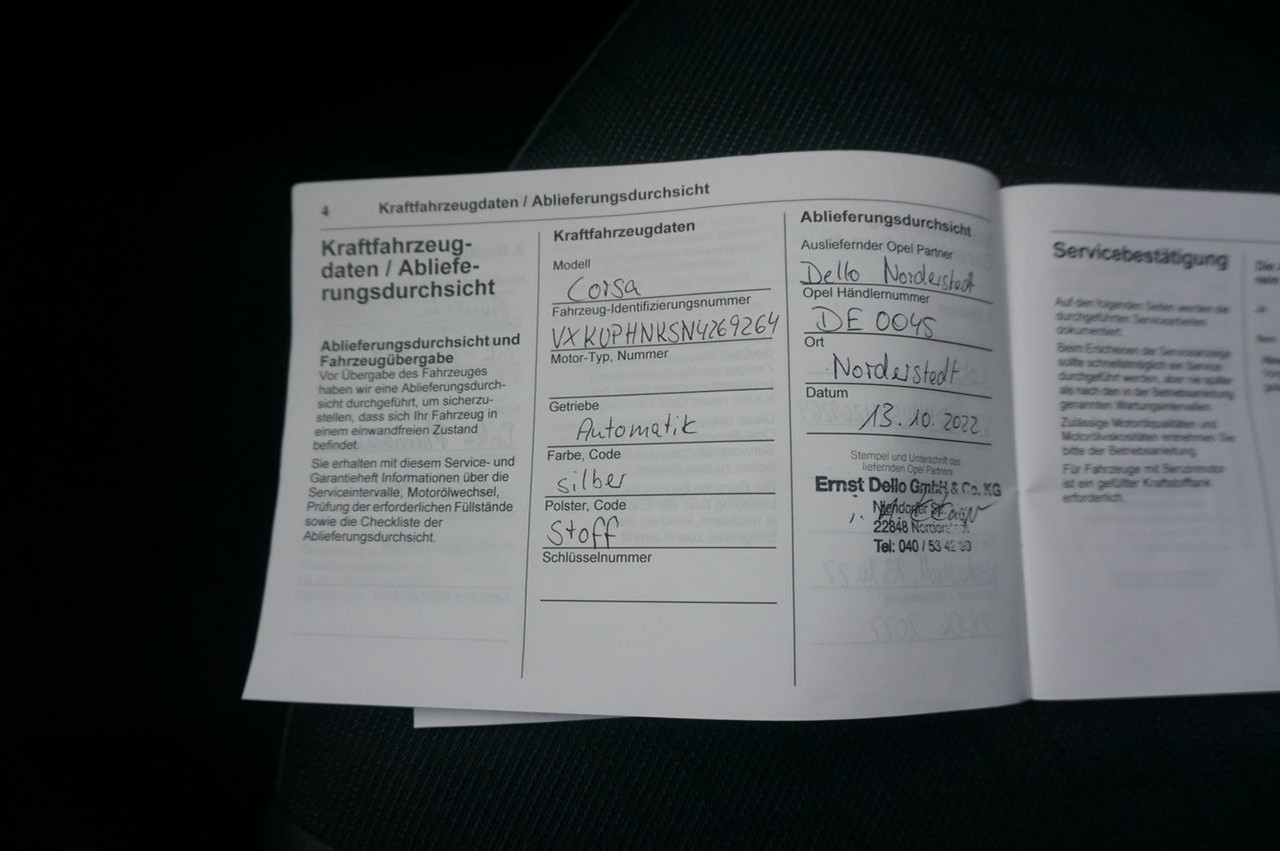 4
Kraftfahrzeugdaten / Ablieferungsdurchsicht
Kraftfahrzeug-
daten / Abliefe-
rungsdurchsicht
Ablieferungsdurchsicht und
Fahrzeugübergabe
Vor Übergabe des Fahrzeuges
haben wir eine Ablieferungsdurch-
sicht durchgeführt, um sicherzu-
stellen, dass sich Ihr Fahrzeug in
einem einwandfreien Zustand
befindet.
Sie erhalten mit diesem Service- und
Garantieheft Informationen über die
Serviceintervalle, Motorölwechsel,
Prüfung der erforderlichen Füllstände
sowie die Checkliste der
Ablieferungsdurchsicht.
Kraftfahrzeugdaten
Modell
Corsa
Fahrzeug-Identifizierungsnummer
VXKUPHNKSN4269264
Motor-Typ, Nummer
Getriebe
Automatik
Farbe, Code
silber
Polster, Code
Stoff
Schlüsselnummer
Ablieferungsdurchsicht
Ausliefernder Opel Partner
Dello Norderstedt
Opel Händlernummer
DE 0045
Ort
Norderstedt
Datum
13.10.2022
Stempel und Unterschrift des
liefernden Opel Partners
Ernst Dello GmbH & Co. KG
22848
Tel: 040 / 53 42
Servicebestätigung
Auf den folgenden Seiten werden die
durchgeführten Servicearbeiten
dokumentiert.
Beim Erscheinen der Serviceanzeige
sollte schnellstmöglich ein Service
durchgeführt werden, aber nie später
als nach den in der Betriebsanleitung
genannten Wartungsintervallen.
Zulässige Motorölqualitäten und
Motorölviskositäten entnehmen Sie
bitte der Betriebsanleitung.
Für Fahrzeuge mit Benzinmotor
ist ein gefüllter Kraftstofftank
erforderlich.